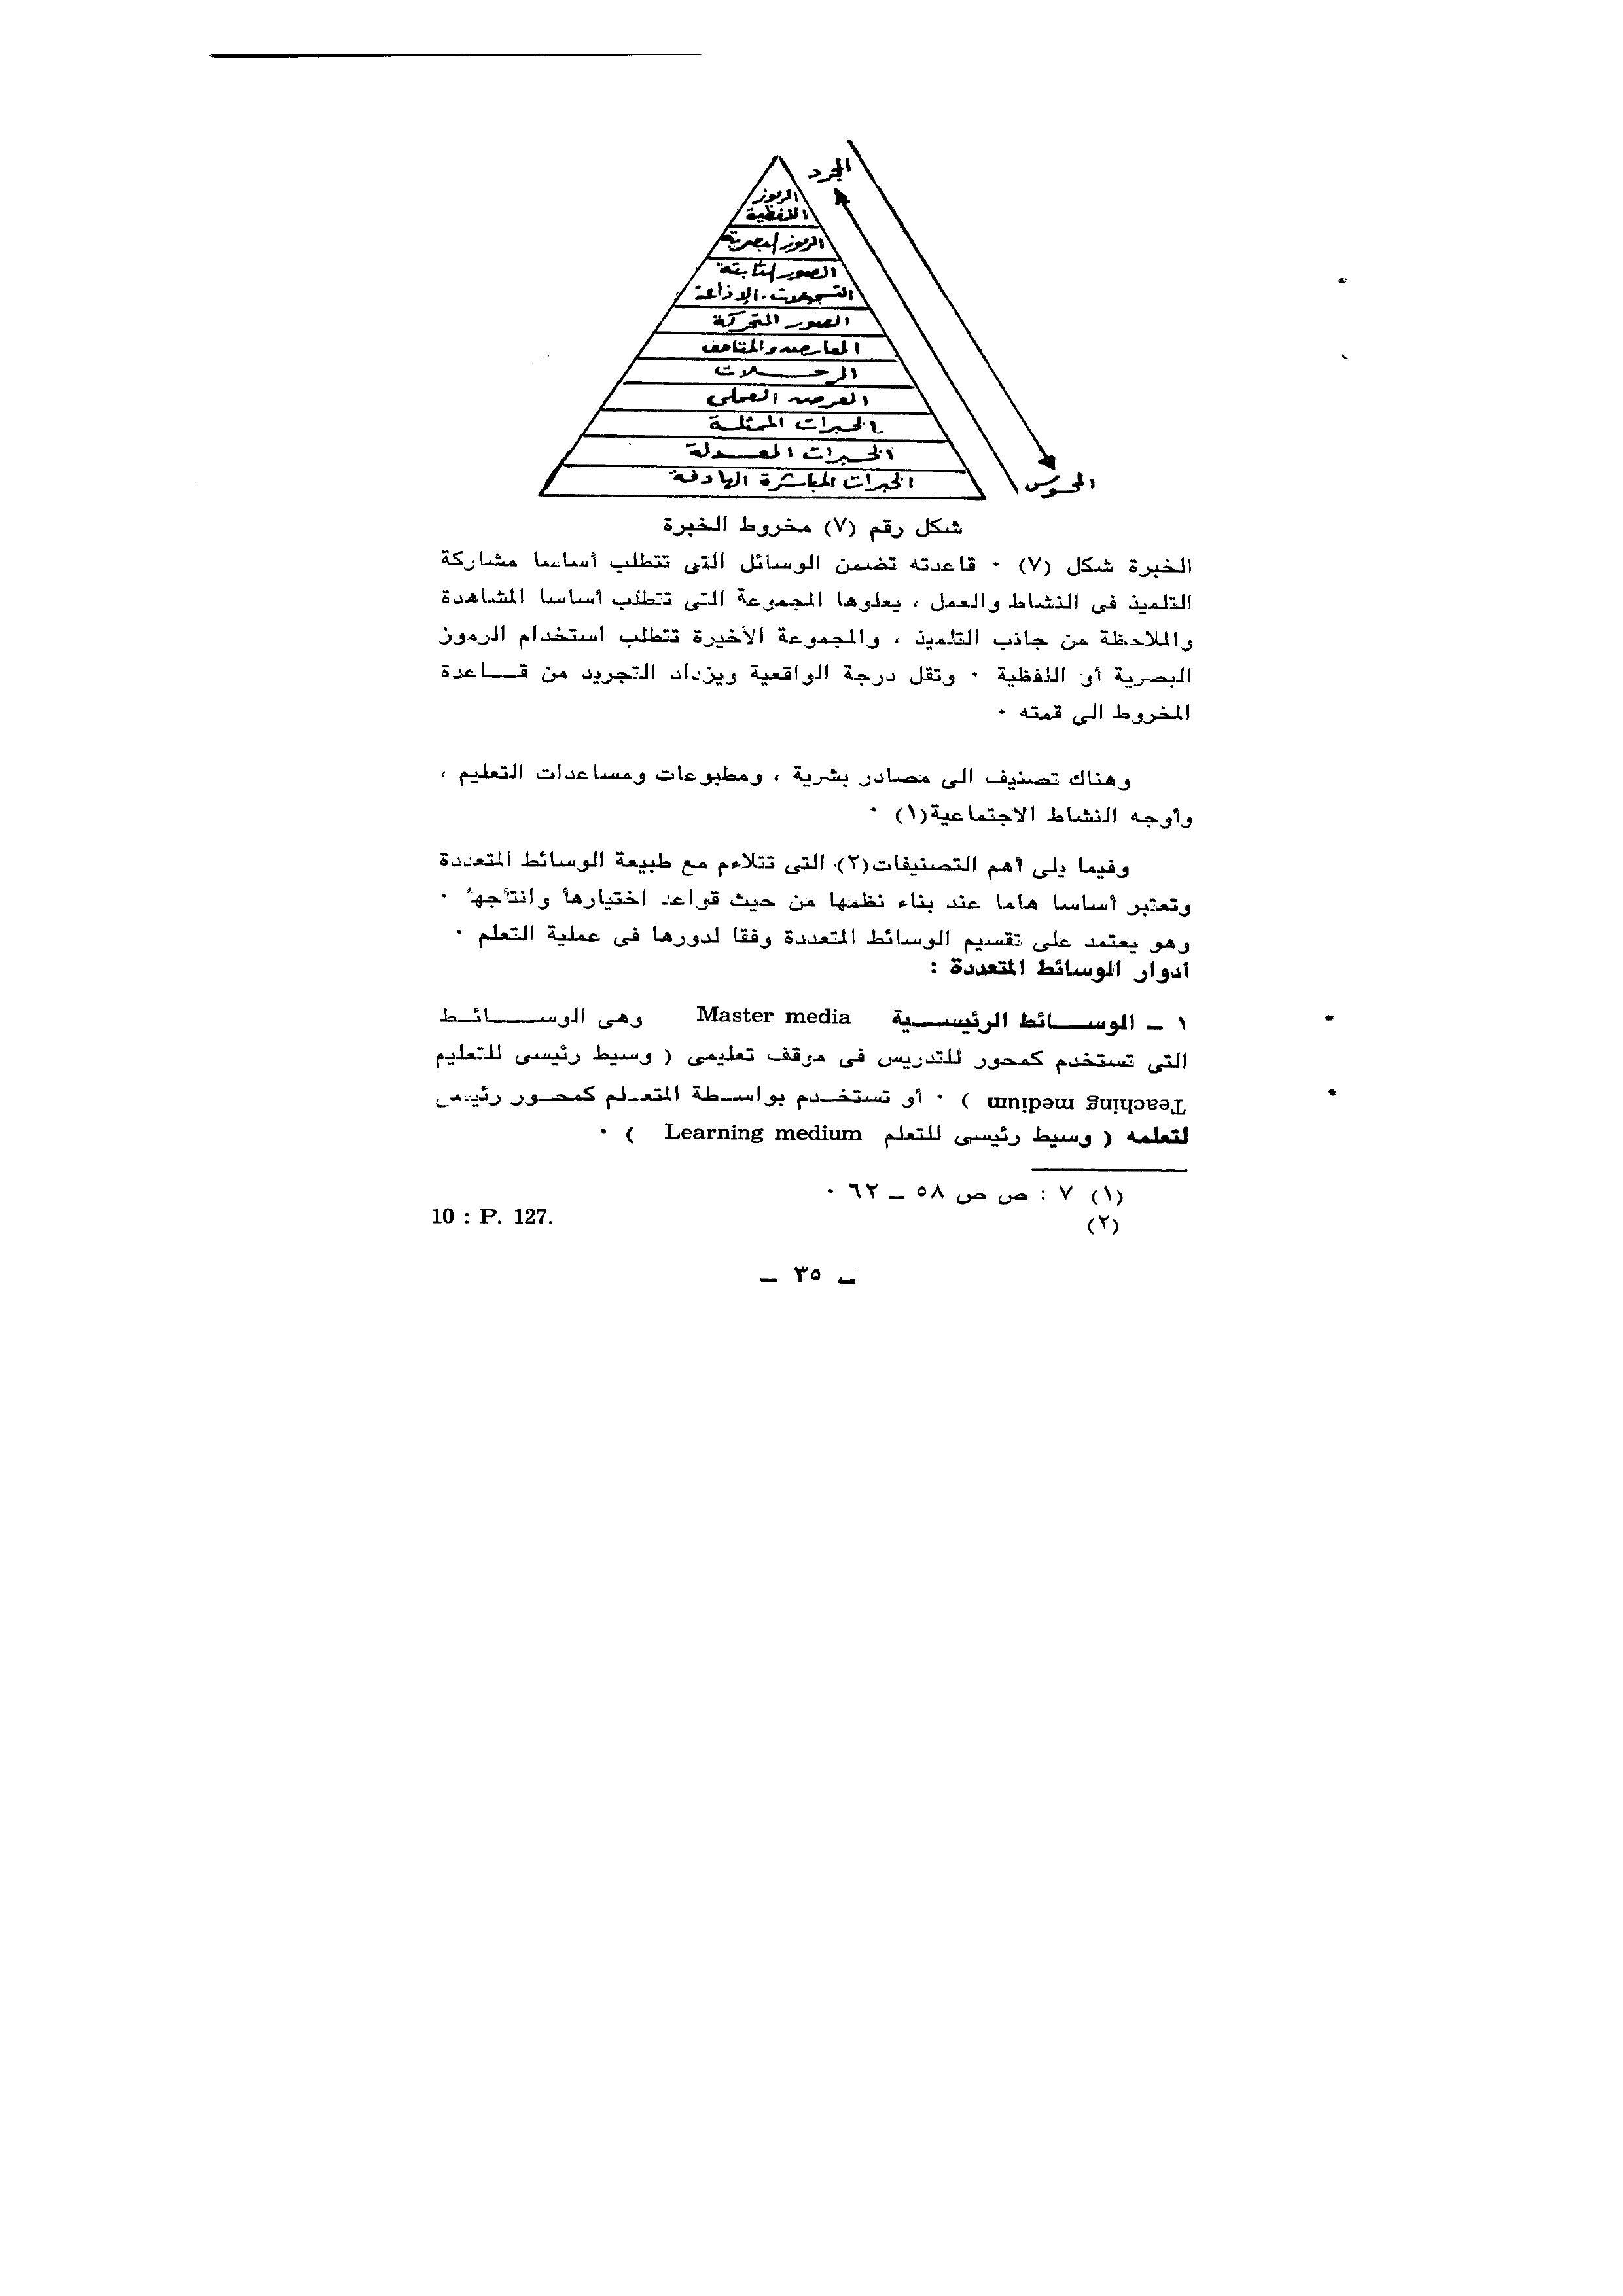 المجرد
الرموز
اللفظية
الرموز البصرية
الصور الثابتة
التسجيلات . الإذاعة
الصور المتحركة
المعارض والمتاحف
الرحلات
العرض العملى
الخبرات الممثلة
الخبرات المعدلة
الخبرات المباشرة الهادفة
المحسوس
شكل رقم (٧) مخروط الخبرة
الخبرة شكل (٧) ٠ قاعدته تضمن الوسائل التى تتطلب أساسا مشاركة
التلميذ فى النشاط والعمل ، يعلوها المجموعة التى تتطلب أساسا المشاهدة
والملاحظة من جانب التلميذ ، والمجموعة الأخيرة تتطلب استخدام الرموز
البصرية أو اللفظية ٠ وتقل درجة الواقعية ويزداد التجريد من قـــاعدة
المخروط الى قمته ٠
وهناك تصنيف الى مصادر بشرية ، ومطبوعات ومساعدات التعليم ،
وأوجه النشاط الاجتماعية(١) ٠
وفيما يلى أهم التصنيفات(٢) التى تتلاءم مع طبيعة الوسائط المتعددة
وتعتبر أساسا هاما عند بناء نظمها من حيث قواعد اختيارها وانتأجها ٠
وهو يعتمد على تقسيم الوسائط المتعددة وفقا لدورها فى عملية التعلم ٠
أدوار الوسائط المتعددة :
١ ـ الوســـائط الرئيســـية Master media وهى الوســـــائــط
التى تستخدم كمحور للتدريس فى موقف تعليمى ( وسيط رئيسى للتعليم
Teaching medium ) ٠ أو تستخـدم بواسـطة المتعـلم كمحـور رئيسى
لتعلمه ( وسيط رئيسى للتعلم Learning medium ) ٠
(١) ٧ : ص ص ٥٨ ـ ٦٢ ٠
(٢) 10 : P. 127.
ـ ٣٥ ـ